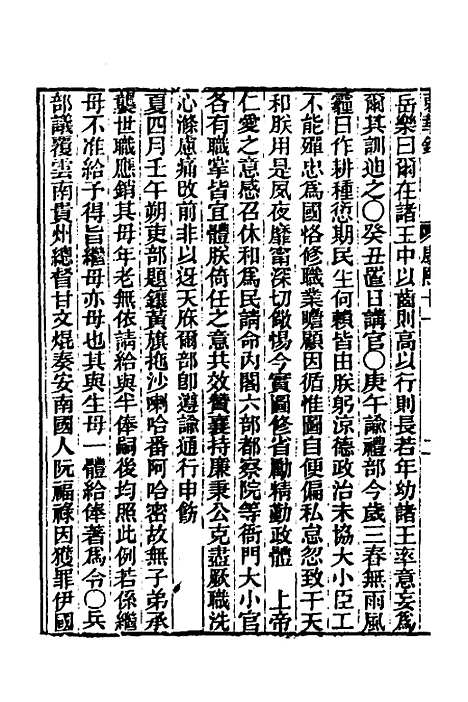 東華錄 康熙十一 二
岳樂曰爾在諸王中以齒則高以行則長若年幼諸王率意妄爲
爾其訓迪之○癸丑置日講官○庚午諭禮部今歲三春無雨風
霾日作耕種愆期民生何賴皆由朕躬涼德政治未協大小臣工
不能殫忠爲國恪修職業瞻顧因循惟圖自便偏私怠忽致干天
和朕用是夙夜靡寧深切儆惕今實圖修省勵精勤政體 上帝
仁愛之意感召休和爲民請命內閣六部都察院等衙門大小官
各有職掌皆宜體朕倚任之意共效贊襄持廉秉公克盡厥職洗
心滌慮痛改前非以迓天庥爾部卽遵諭通行申飭
夏四月壬午朔吏部題鑲黃旗拖沙喇哈番阿哈密故無子弟承
襲世職應銷其母年老無依請給與半俸嗣後均照此例若係繼
母不准給予得旨繼母亦母也其與生母一體給俸著爲令○兵
部議覆雲南貴州總督甘文焜奏安南國人阮福祿因獲罪伊國